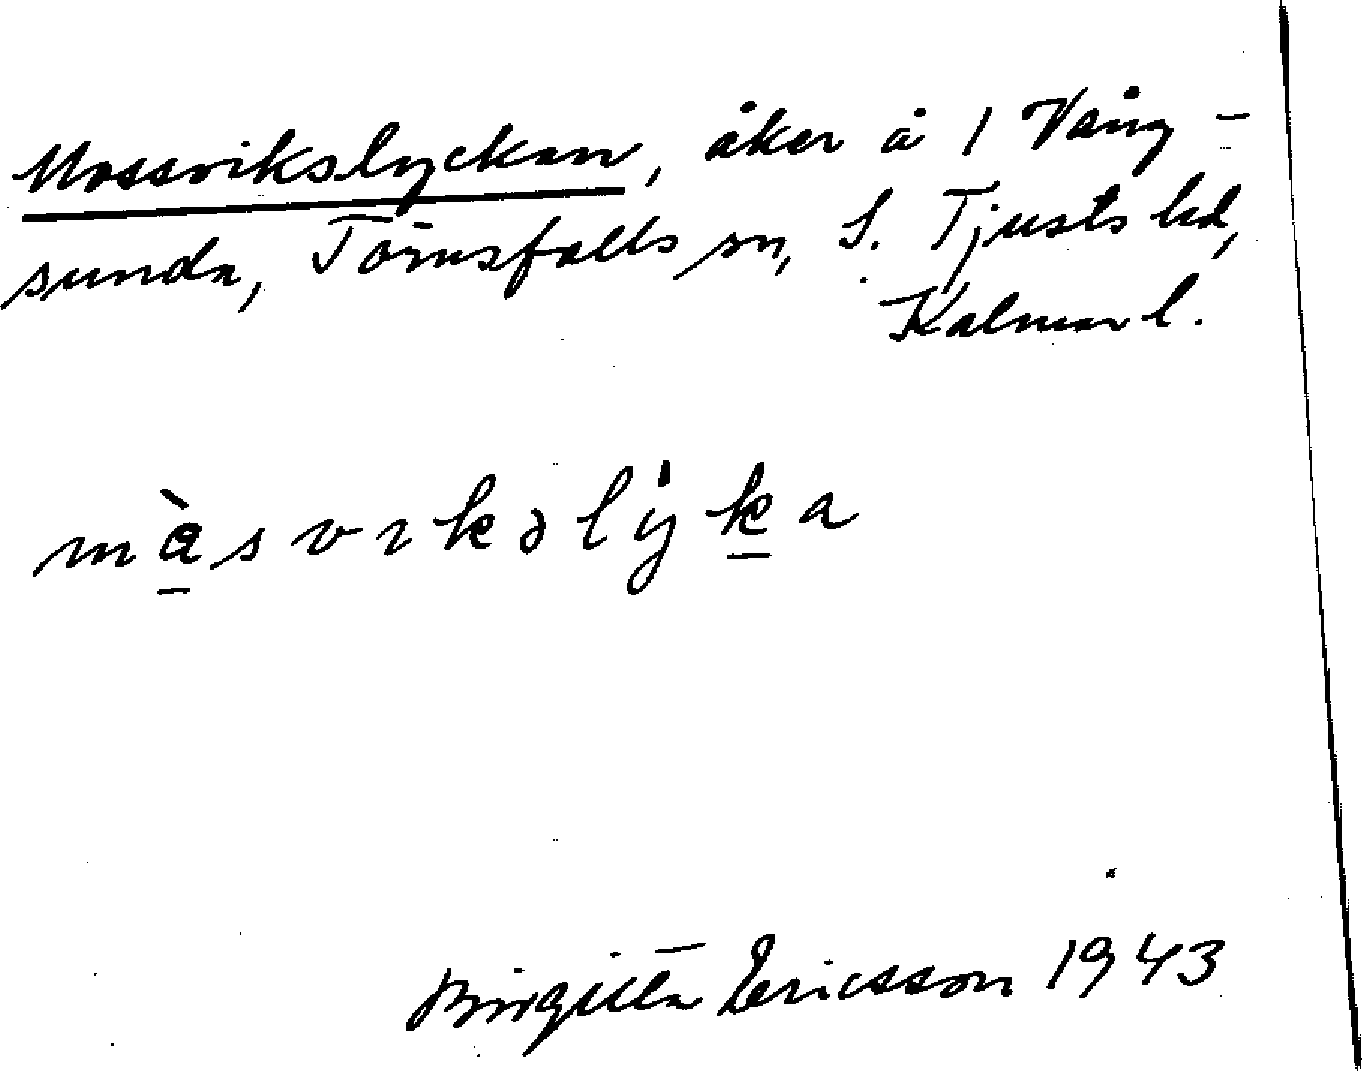 Mossvikslyckan, åker å 1 Vång-
sunda, Törnsfalls sn, S. Tjusts hd,
Kalmar l.
màsvıkəlýka
Birgitta Ericsson 1943